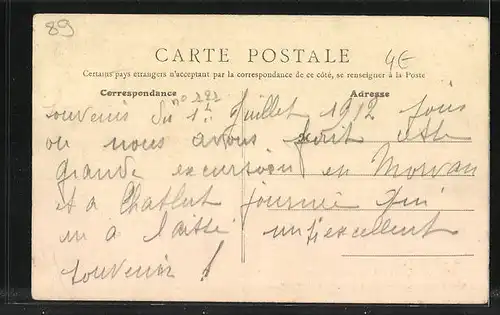 89
4E
CARTE POSTALE
Certains pays étrangers n'acceptant par la correspondance de ce côté, se renseigner à la Poste
Correspondance Adresse
no 292
souvenir du 14 Juillet 1912 jour
où nous avons cette
grande excursion en Morvan
et a Journée qui
m'a laissé un excellent
souvenir !